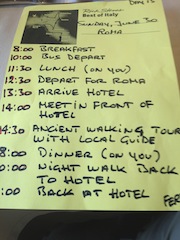 DAY 15
Rick Steves
Best of Italy
SUNDAY, JUNE 30
ROMA
8:00 BREAKFAST
10:00 BUS DEPART
11:30 LUNCH (ON YOU)
12:30 DEPART FOR ROMA
13:30 ARRIVE HOTEL
14:00 MEET IN FRONT OF
HOTEL
14:30 ANCIENT WALKING TOUR
WITH LOCAL GUIDE
8:00 DINNER (ON YOU)
0:00 NIGHT WALK BACK
TO HOTEL
:00 BACK AT HOTEL